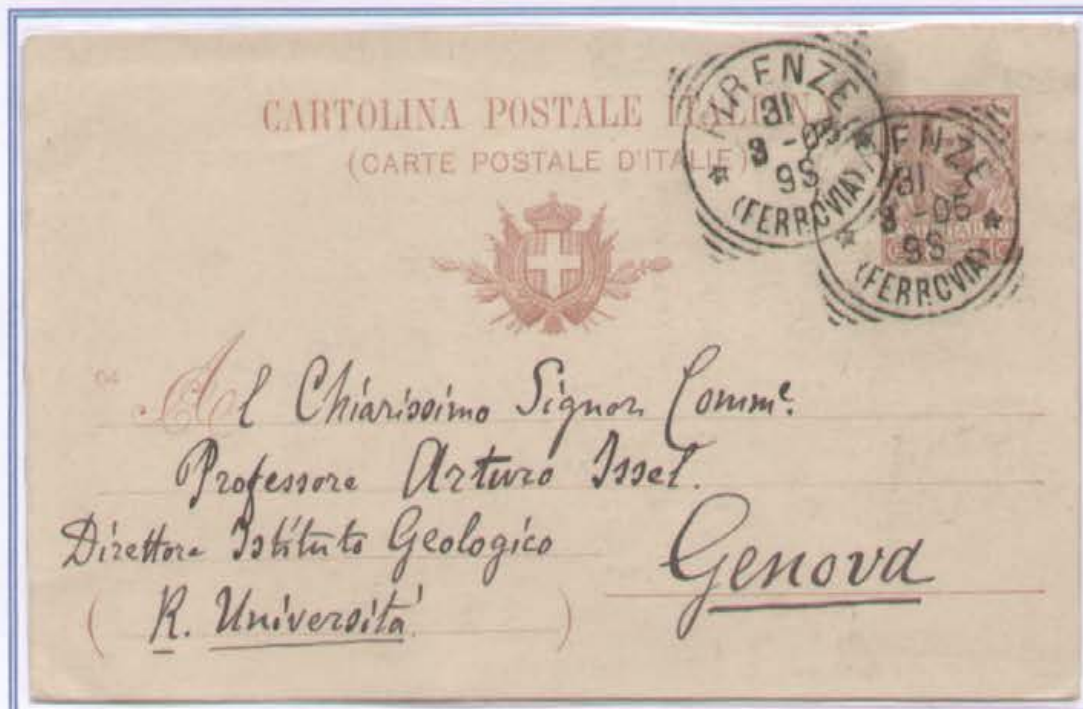 CARTOLINA POSTALE ITALIANA
(CARTE POSTALE D'ITALIE)
FIRENZE
31
3-05
9S
(FERROVIA)
FIRENZE
31
3-05
9S
(FERROVIA)
04
Al Chiarissimo Signor Comm.e
Professore Arturo Issel.
Direttore Istituto Geologico
Genova
( R. Università )